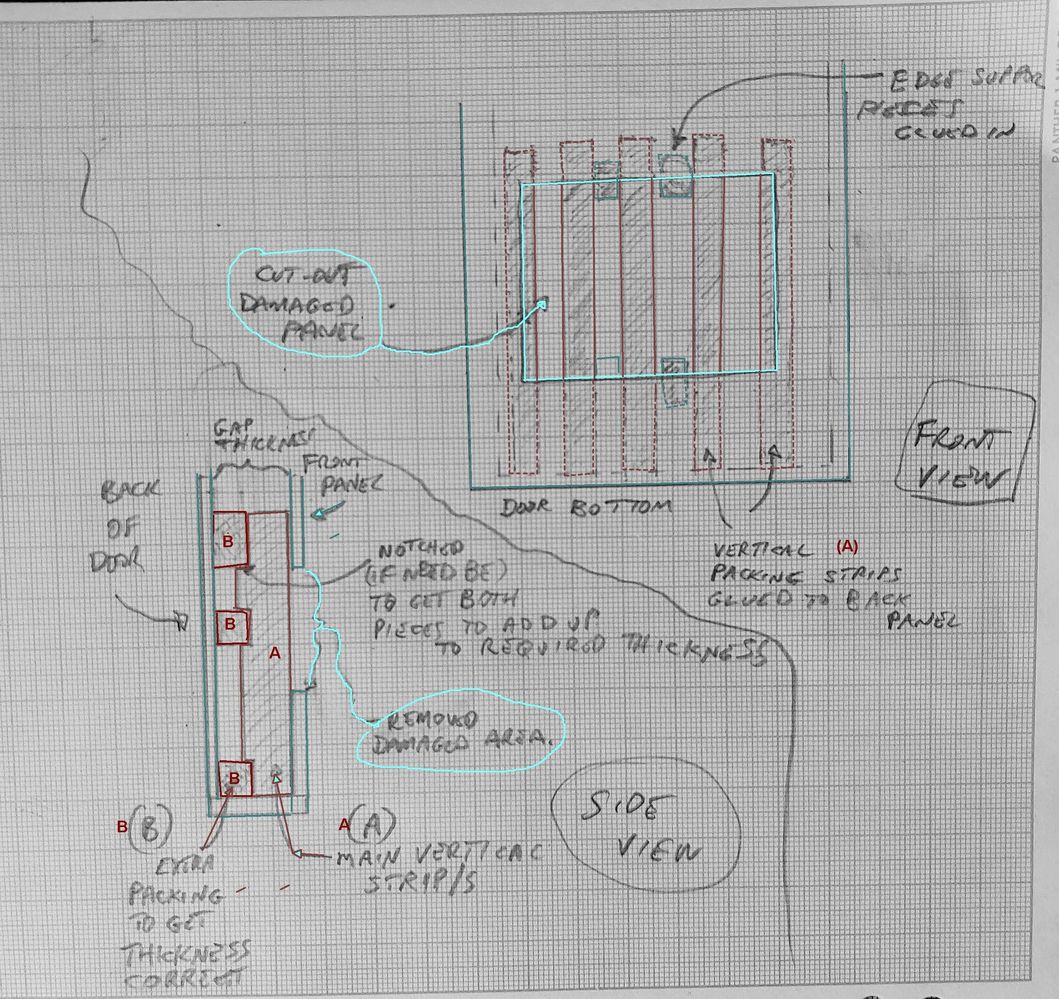 EDGE SUPPOR
PIECES
GLUED IN
CUT-OUT
DAMAGED
PANEL
FRONT
VIEW
DOOR BOTTOM
VERTICAL (A)
PACKING STRIPS
GLUED TO BACK
PANEL
GAP
THICKNESS
FRONT
PANEL
BACK
OF
DOOR
NOTCHED
(IF NEED BE)
TO GET BOTH
PIECES TO ADD UP
TO REQUIRED THICKNESS
B
B
A
B
REMOVED
DAMAGED AREA.
SIDE
VIEW
B (B)
EXTRA
PACKING
TO GET
THICKNESS
CORRECT
A (A)
MAIN VERTICAL
STRIP/S